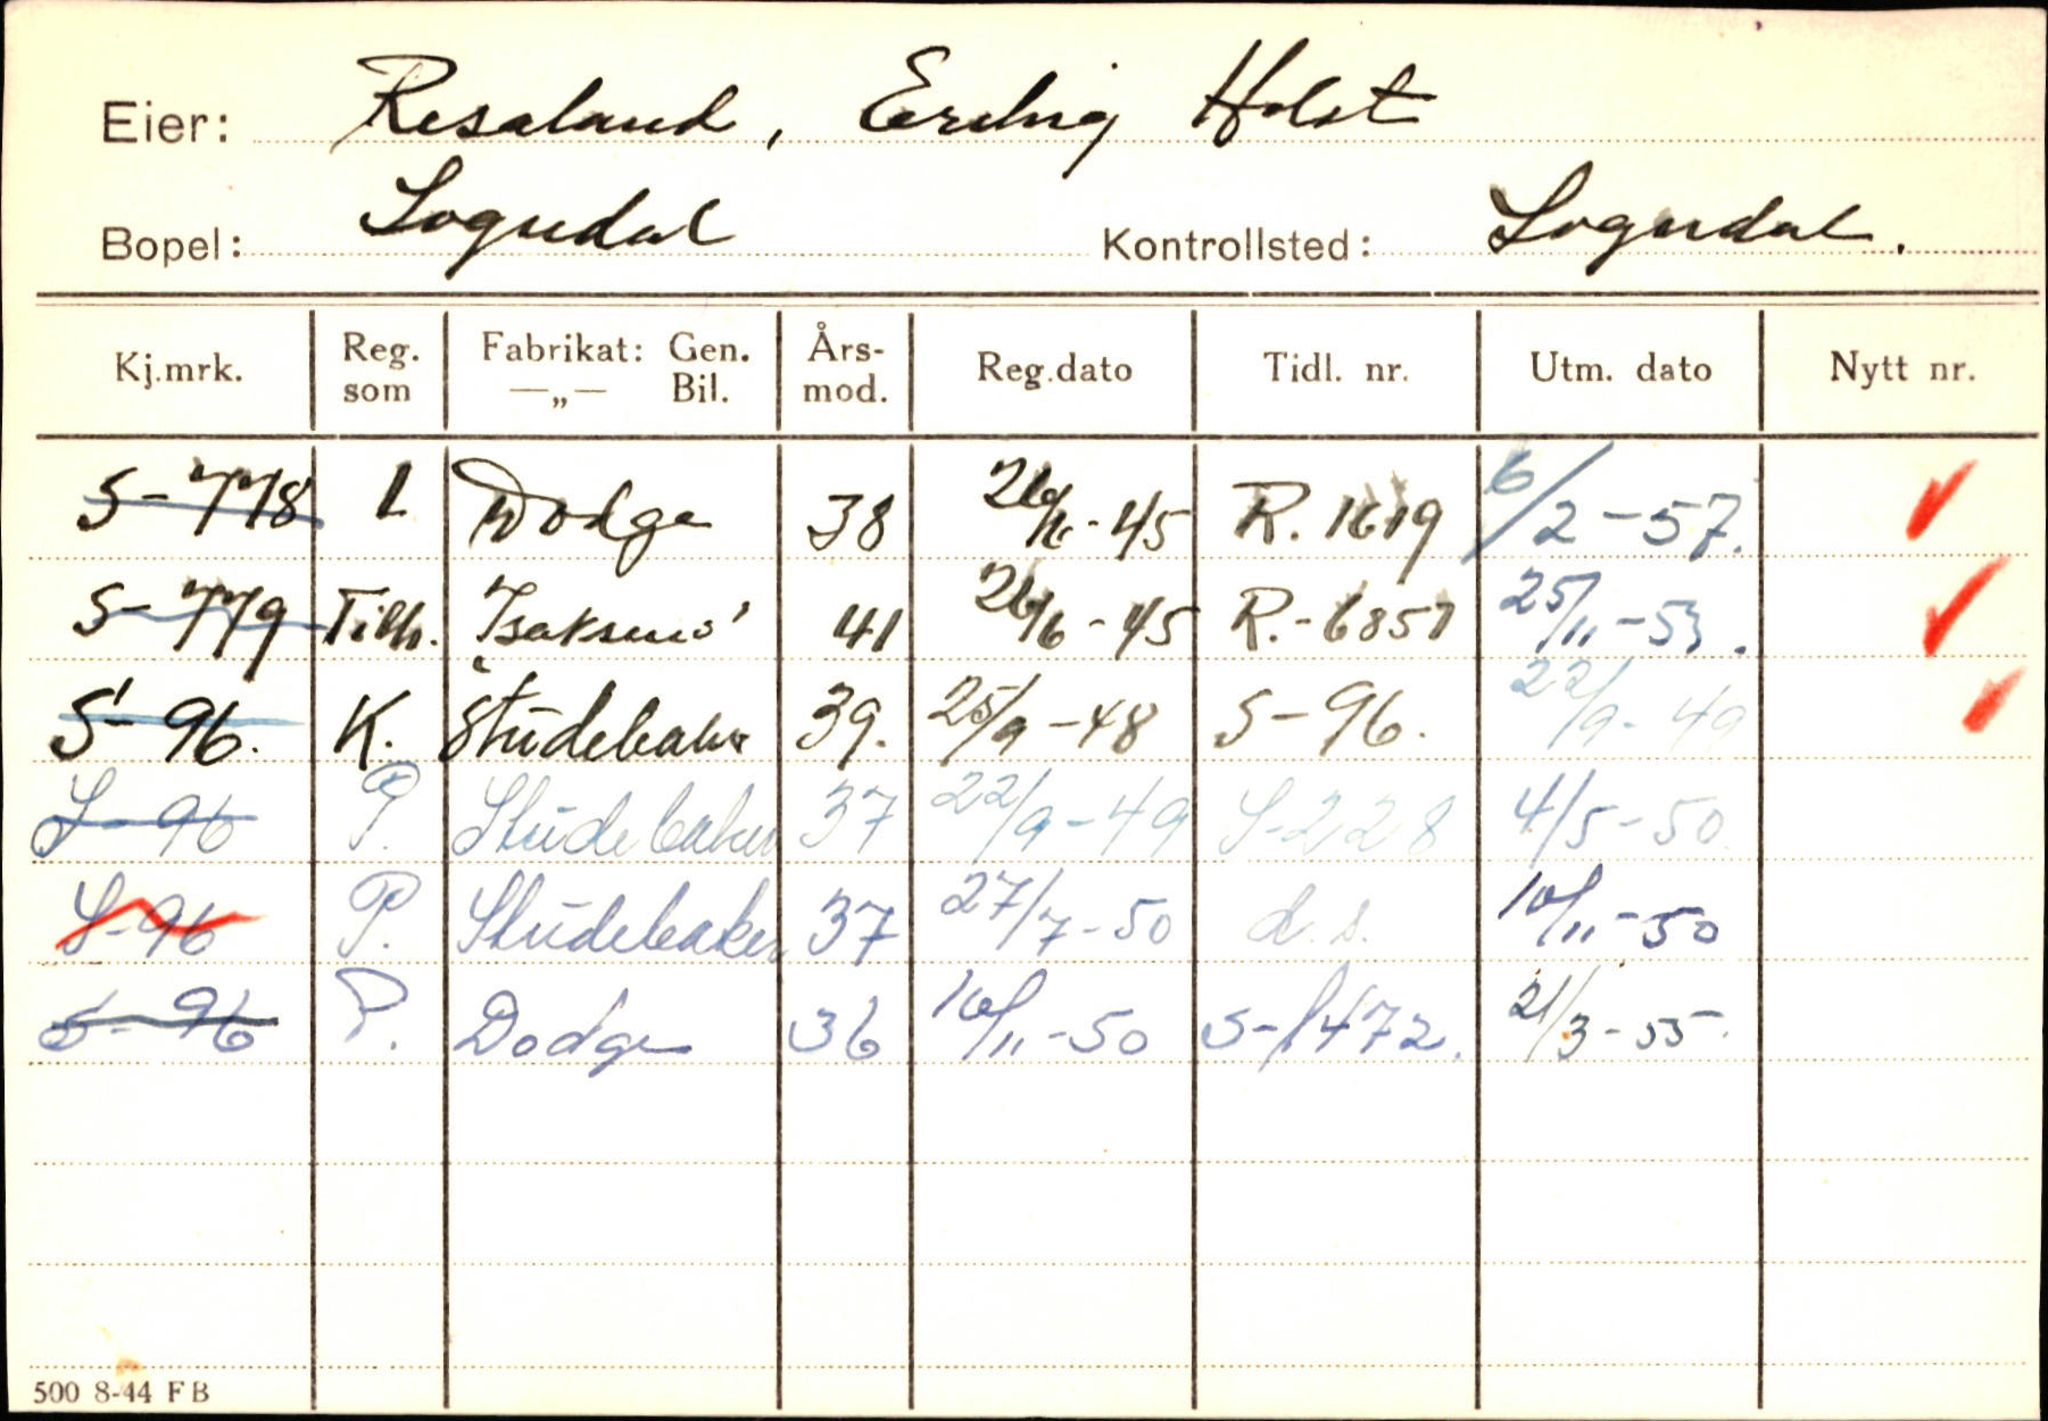 Eier: Resaland, Erling Holst
Bopel: Sogndal Kontrollsted: Sogndal.
Kj.mrk. Reg. som Fabrikat: Gen. —„— Bil. Års- mod. Reg.dato Tidl. nr. Utm. dato Nytt nr.
S-778 L Dodge 38 26/6-45 R. 1619 6/2-57.
S-779 Tilh. 41 26/6-45 R.-6851 25/11-53.
S-96. K. Studebaker 39. 25/9-48 S-96. 22/9-49
S-96 P. Studebaker 37 22/9-49 S-228 4/5-50
S-96 P. Studebaker 37 27/7-50 d.s. 10/11-50
S-96 P. Dodge 36 10/11-50 S-1472. 21/3-55.
500 8-44 FB